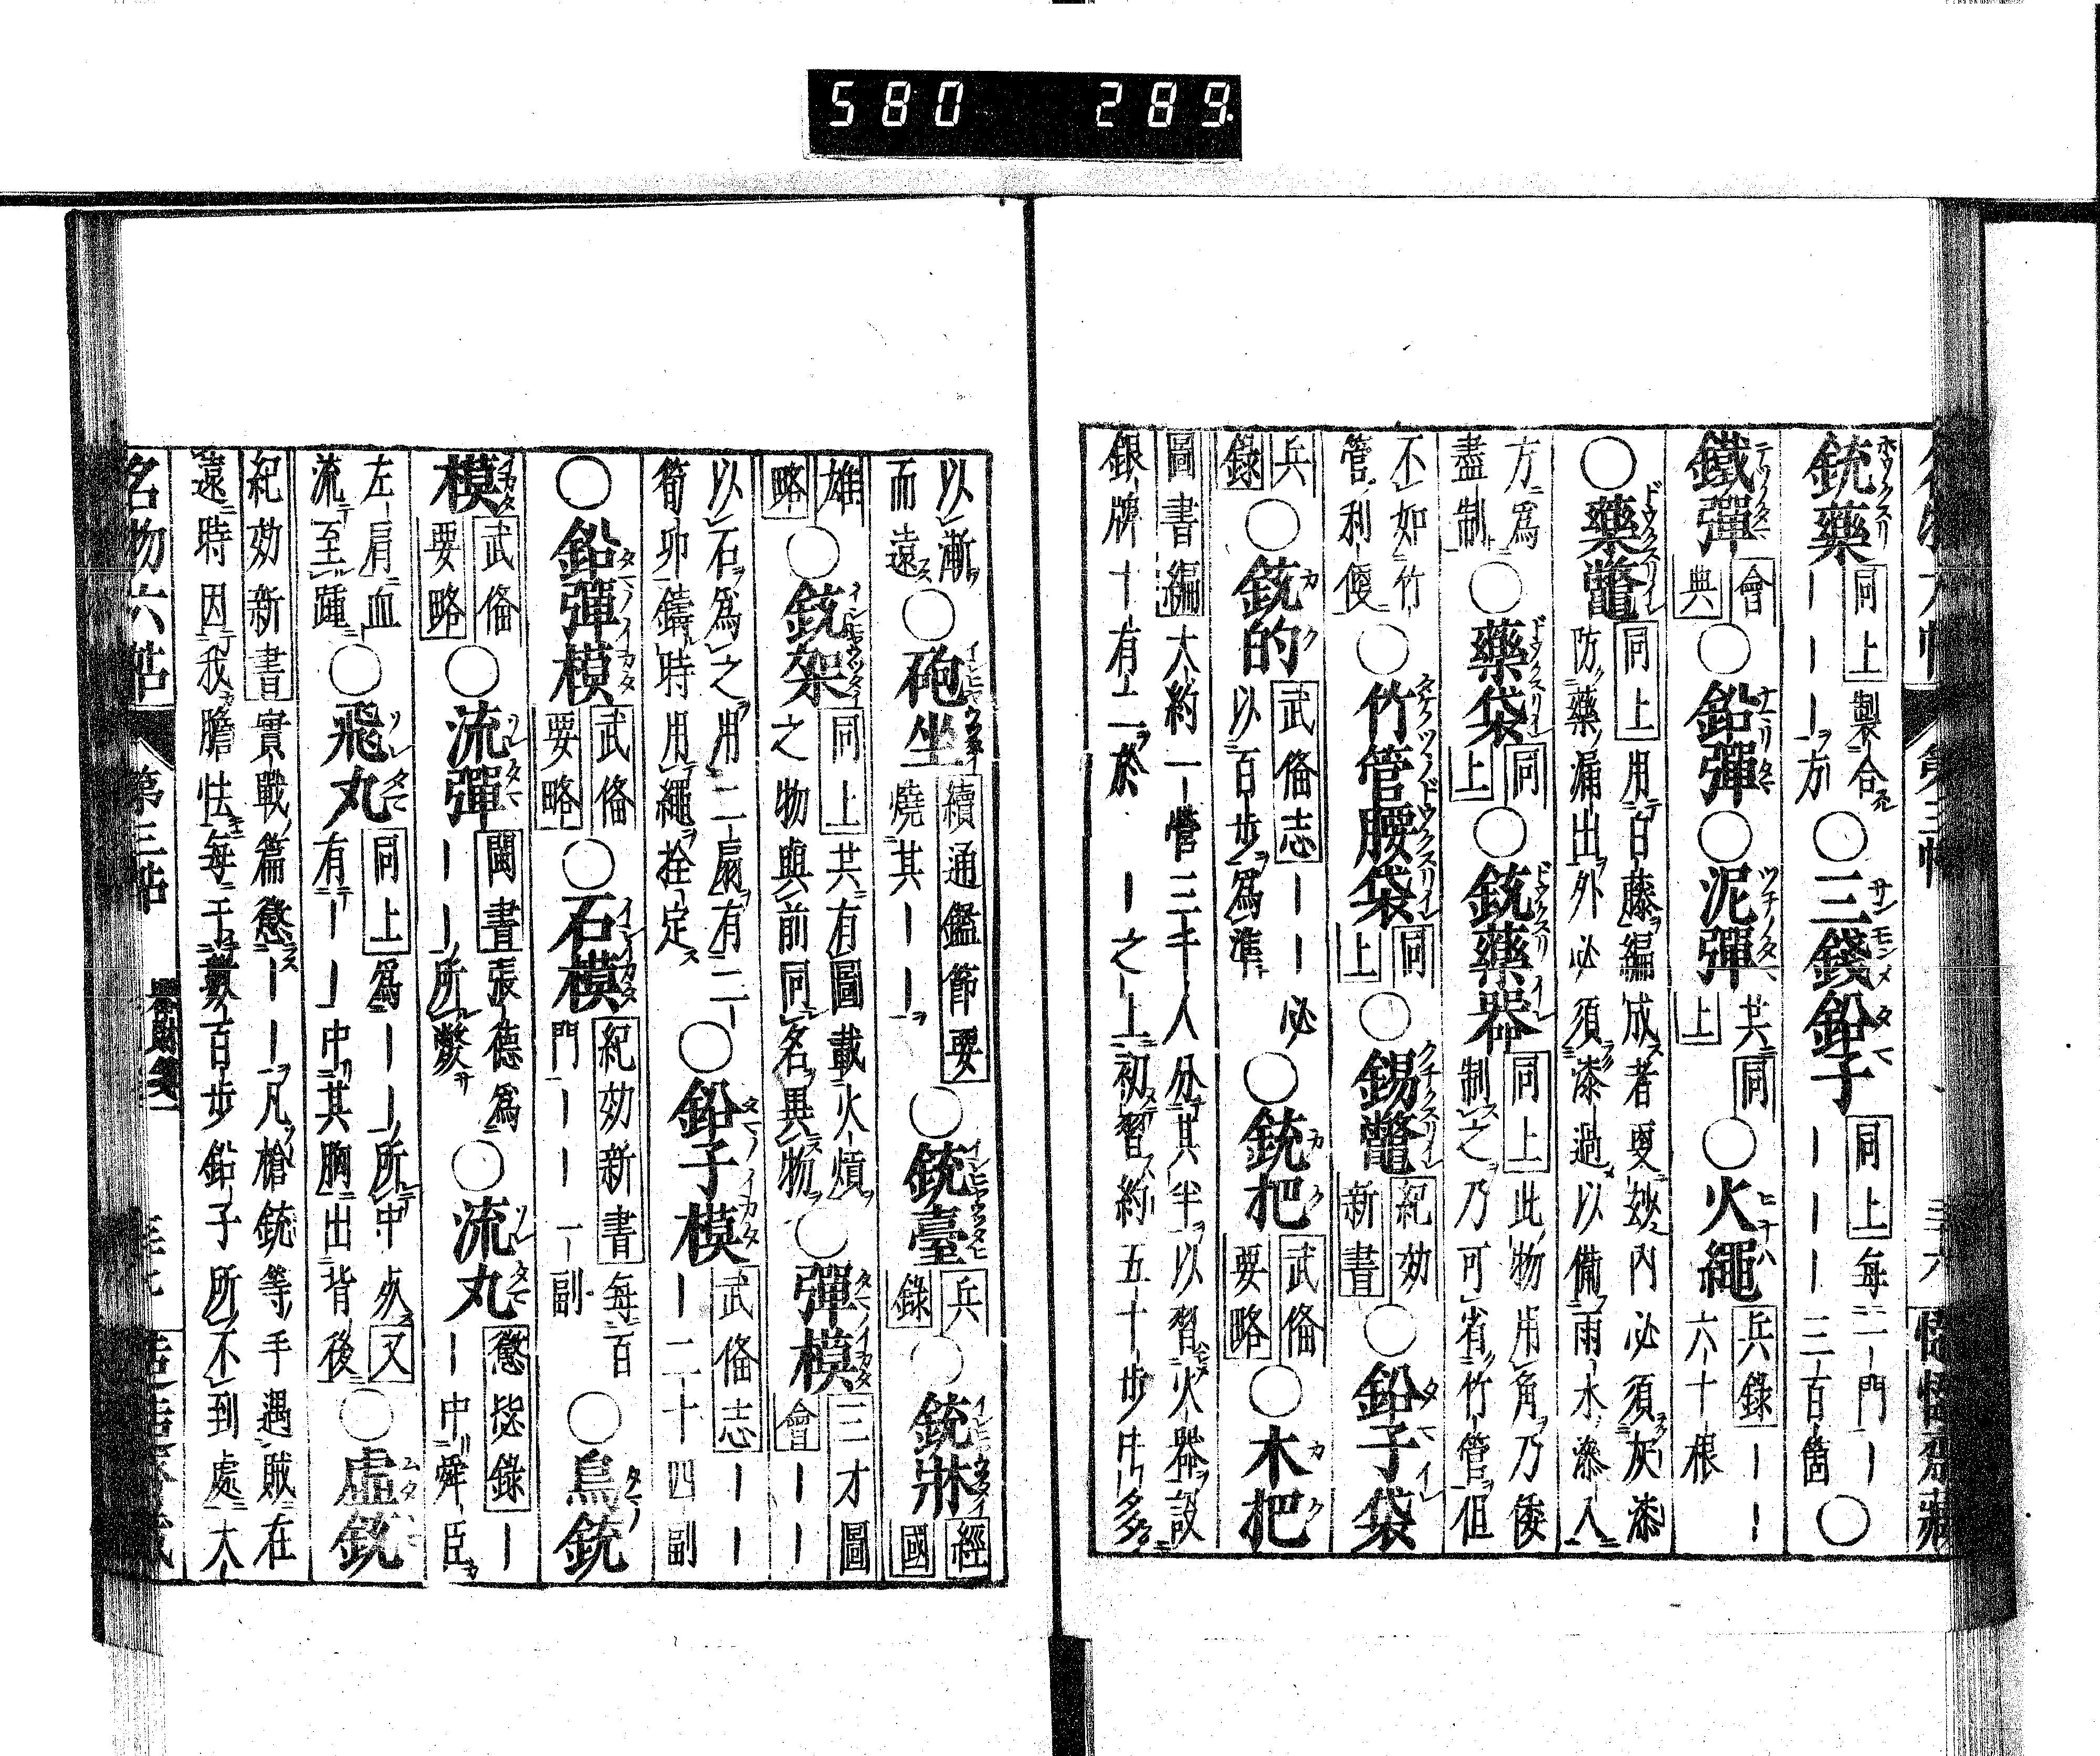 580 289.
銃藥 同上 製合 ｜｜｜方 ○三錢鉛子 同上 每一門｜｜｜｜三百箇 ○
鐵彈 會典 ○鉛彈 ○泥彈 共同上 ○火繩 兵錄 ｜｜六十根
○藥鼈 同上 用百藤編成者更妙內必須灰漆 防藥漏出外必須漆過以備雨水滲入
方爲盡制 ○藥袋 同上 ○銃藥器 同上 此物用角乃倭制之乃可省竹管但
不如竹管利便 ○竹管腰袋 同上 ○錫鼈 紀効新書 ○鉛子袋
兵錄 ○銃的 武俻志 ｜｜必以百步爲準 ○銃把 武俻要略 ○木把
圖書編 大約一營三千人分其半以習火器設
銀牌十有二於｜之上初習約五十步中多
以漸而遠 ○砲坐 續通鑑節要 燒其｜｜ ○銃臺 兵錄 ○銃牀 經國
雄略 ○銃架 同上 共有圖載火熕之物與前同名異物 ○彈模 三才圖會 ｜｜
以石爲之用二扇有二筍卯鑄時用繩拴定 ○鉛子模 武俻志 ｜｜｜二十四副
○鉛彈模 武俻要略 ○石模 紀効新書 每百門｜｜一副 ○鳥銃
模 武俻要略 ○流彈 閩書 張德爲｜｜所斃 ○流丸 懲毖錄 ｜｜中舜臣
左肩血流至踵 ○飛丸 同上 爲｜｜所中死 又 有｜｜中其胸出背後 ○虛銃
紀効新書 實戰篇懲｜｜凡槍銃等手遇賊在
遠時因我膽怯每于數百步鉛子所不到處大
名物六帖 第三帖